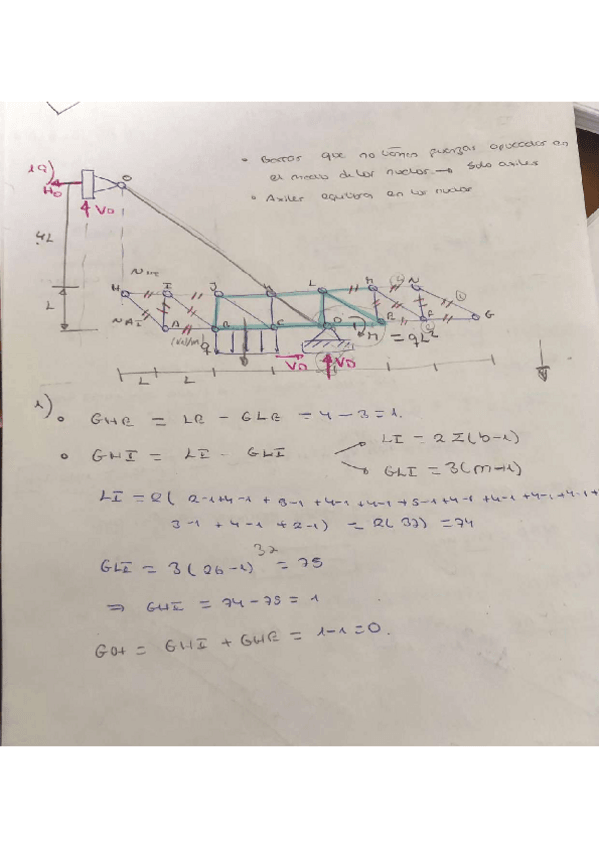 • Barras que no tienen fuerzas aplicadas en
el medio de los nudos → Solo axiles
• Axiles equilibra en los nudos
1a)
O
H₀
V₀
4L
L
H
I
J
L
M
N
A
B
C
D
E
F
G
q
= qL²
V₀
V₀
L
L
1)
• GHE = LE - GLE = 4 - 3 = 1.
• GHI = LI - GLI
LI = 2Σ(b-1)
GLI = 3(m-1)
LI = 2( 2-1+4-1 + 3-1 +4-1 +4-1 +5-1 +4-1 +4-1 +4-1 +4-1+
3-1 +4-1 +2-1) = 2( 37) = 74
37
GLI = 3( 26-1) = 75
⇒ GHI = 74-75 = 1
GH = GHI + GHE = 1-1 = 0.